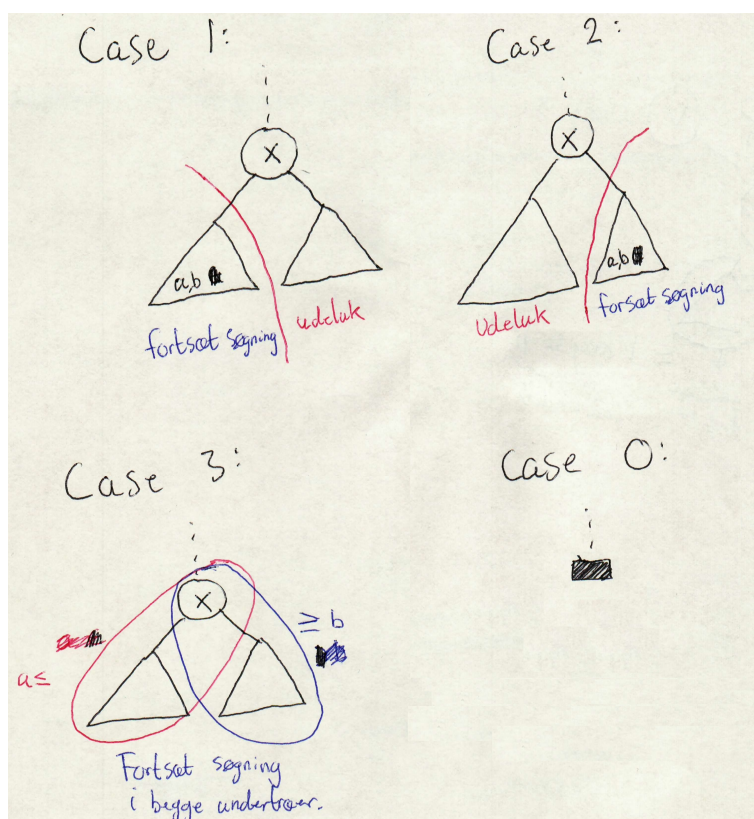 Case 1:
X
a,b
fortsæt søgning
udeluk
Case 2:
X
a,b
Udeluk
forsæt søgning
Case 3:
X
a≤
≥ b
Fortsæt søgning
i begge undertræer.
Case 0: